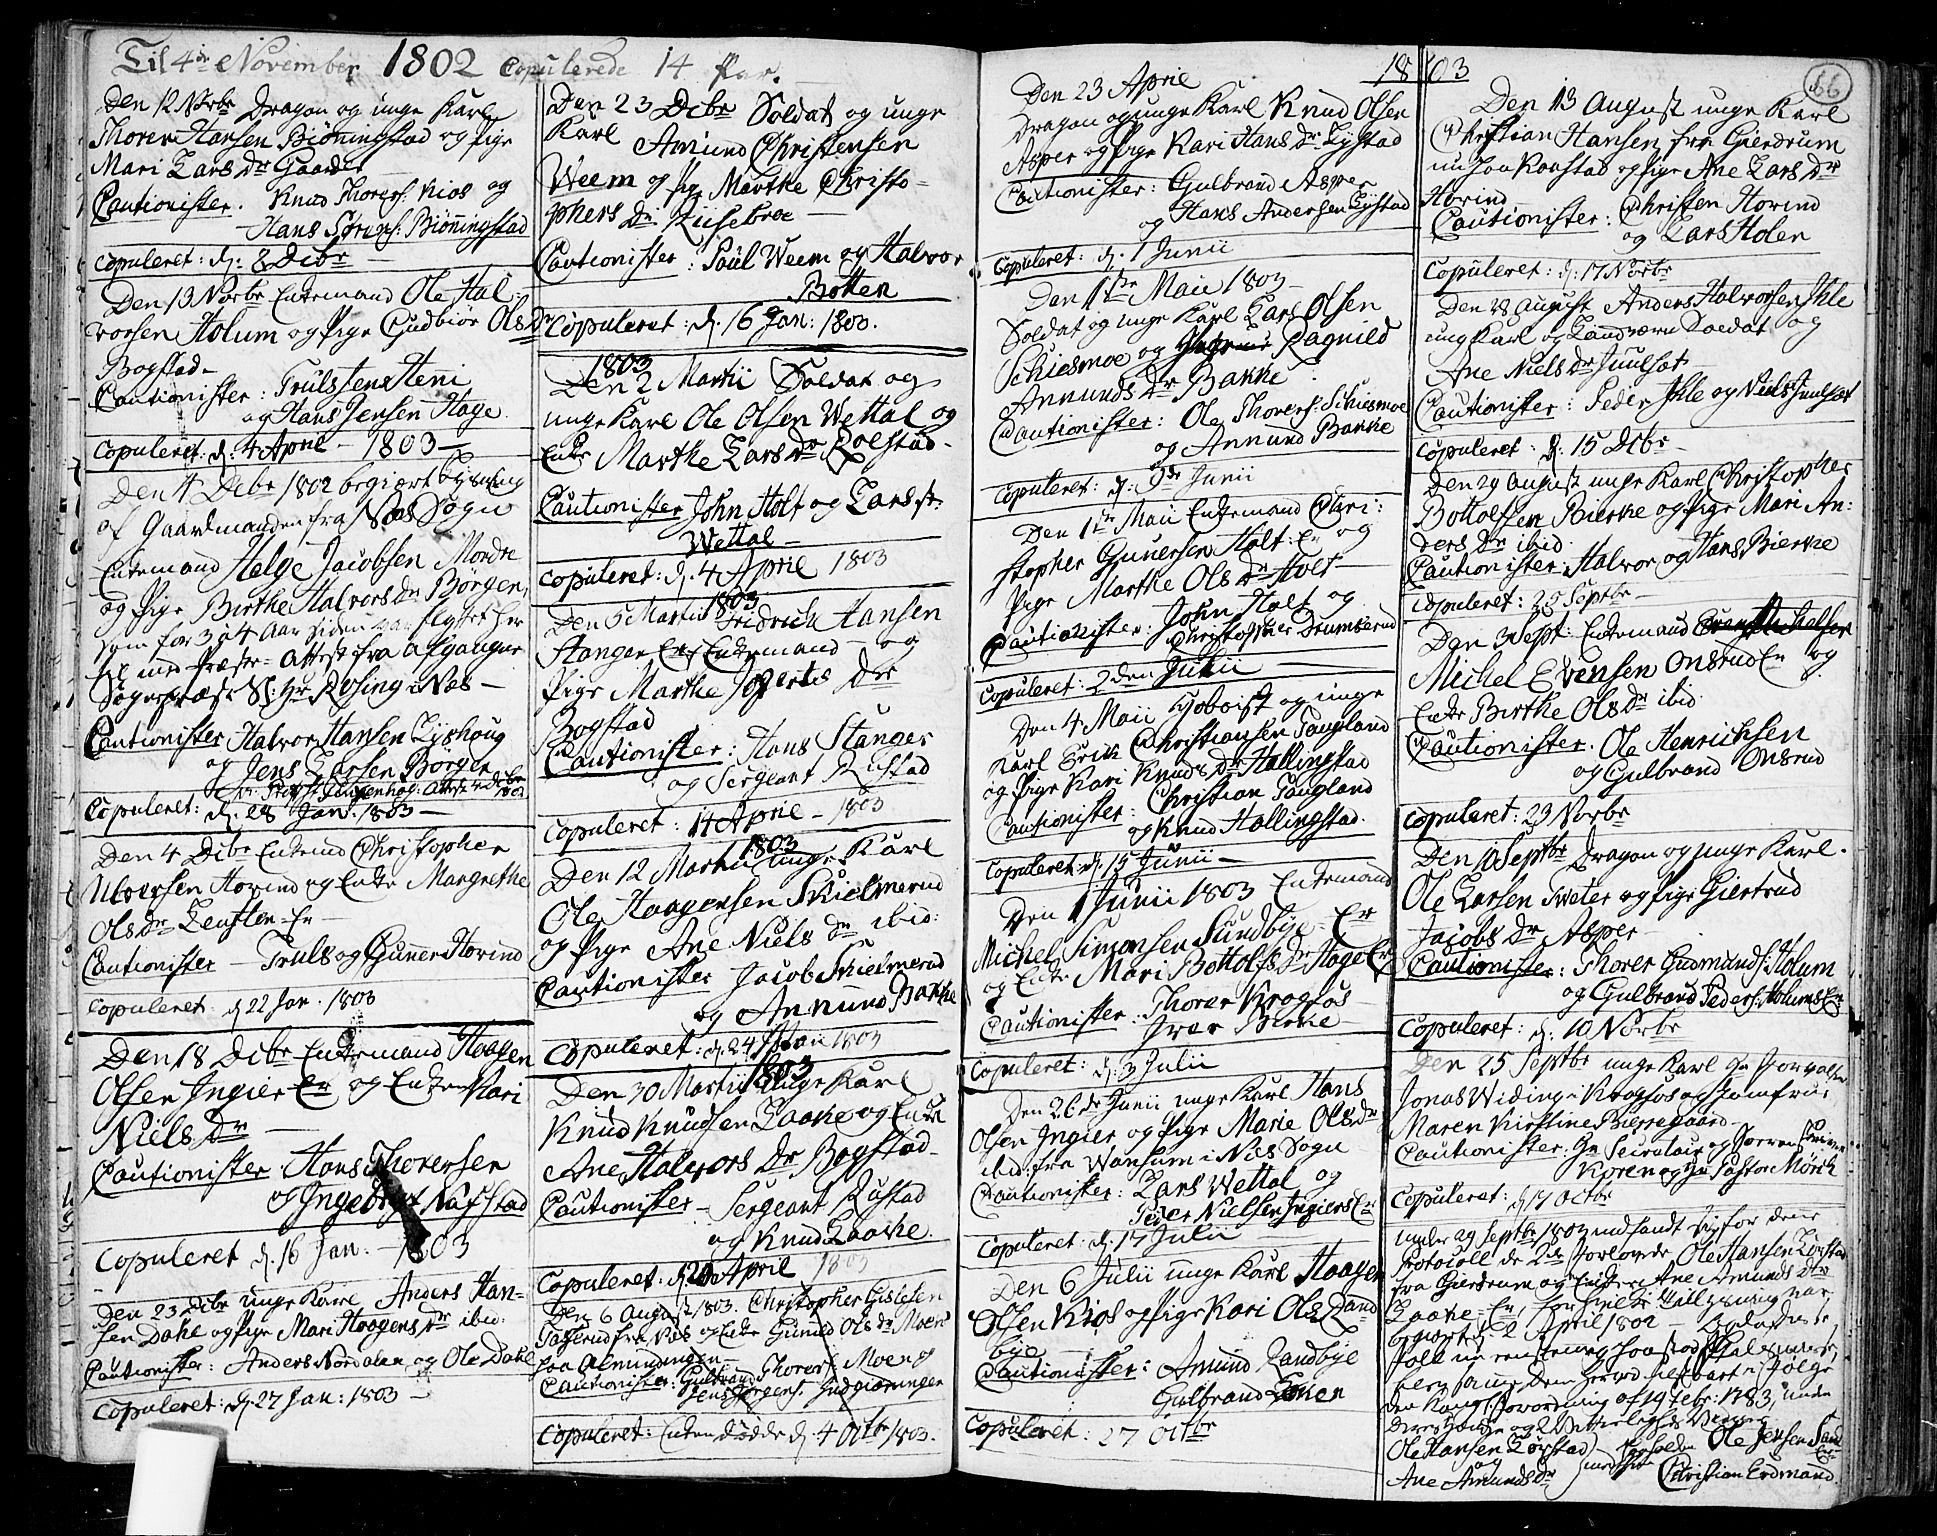 Til 4de November 1802 Copulerede 14 Par.
Den 12 Novbr Dragon og unge Karl
Thorer Hansen Biønningstad og Pige
Mari Lars Dr Gaarder
Cautionister. Knud Thorers: Kios og
Hans Sørens: Biønningstad
Copuleret: d: 8 Dcbr
Den 13 Novbr Enkemand Ole Hal-
vorsen Holum og Pige Gudbiør Ols Dr
Bogstad
Cautionister: Truls Jens Heni
og Hans Jensen Hage
Copuleret: d: 4 April - 1803
Den 4 Dcbr 1802 begiært Lysning
af Gaardmanden fra Næs Sogn
Enkemand Helge Jacobsen Mordre
og Pige Birthe Halvors Dr Børgen,
som for 3 à 4 Aar siden var flyttet her
til med Præste-Attest fra afgangne
Sognepræst Sl: Hr Rosing i Næs
Cautionister Halvor Hansen Lyshoug
og Jens Larsen Børgen
Copuleret: d: 28 Jan: 1803
Den 4 Dcbr Enkemd Christopher
Ulversen Hovind og Enke Margrethe
Ols Dr
Cautionister - Truls og Gunner Hovind
Copuleret d 22 Jan. 1803
Den 18 Dcbr Enkemand Haagen
Olsen Ingier Er og Enken Kari
Niels Dr
Cautionister Hans Thoresen
og Ingebrigt Nafstad
Copuleret d. 16 Jan: 1803
Den 23 Dcbr unge Karl Anders Han-
sen Dahl og Pige Mari Haagens Dr ibid:
Cautionister: Anders Nordalen og Ole Dahl
Copuleret: d 27 Jan: 1803
Den 23 Dcbr Soldat og unge
Karl Amund Christensen
Weem og Pig Marthe Christo-
phers Dr Riisebroe
Cautionister: Poul Weem og Halvor
Botten
Copuleret: d. 16 Jan: 1803.
1803
Den 2 Martii Soldat og
unge Karl Ole Olsen Wettal og
Enke Marthe Lars Dr Rolstad
Cautionister John Holt og Lars
Wettal
Copuleret: d. 4 April 1803
1803
Den 5 Martii Fridrich Hansen
Stanger Er Enkemand og
Pige Marthe Dr
Bogstad
Cautionister: Hans Stanger
og Sergeant Rustad
Copuleret: 14 April - 1803
1803
Den 12 Martii unge Karl
Ole Haagensen Skielmerud
og Pige Ane Niels Dr ibid:
Cautionister Jacob Skielmerud
og Annund Bakke
Copuleret: d. 24 1803
1803
Den 30 Martii unge Karl
Knud Knudsen Laake og Enke
Ane Halvors Dr Bogstad
Cautionister - Sergeant Rustad
og Knud Laake.
Copuleret: d 20 April 1803
Den 6 August 1803. Christopher Gislesen
fra Næs og Enke Gunild Ols Dr Moen
paa Almindingen
Cautionister: Gulbrand Thorers: Moen og
Jens Jørgens:
Copuleret: Enken døde d. 4 Octbr 1803.
1803
66
Den 23 April
Dragon og unge Karl Knud Olsen
Asper og Pige Kari Hans Dr Lystad
Cautionister: Gulbrand Asper
og Hans Andersen Lystad
Copuleret: d. 1 Junii
Den 1ste Maii 1803
Soldat og unge Karl Lars Olsen
Schiesmoe og Ragnild
Annunds Dr Bakke
Cautionister: Ole Thorers: Schiesmoe
og Annund Bakke
Copuleret: d: 9de Junii
Den 1ste Maii Enkemand Chri:
stopher Gunersen Holt-Er og
Pige Marthe Ols Dr Holt
Cautionister: John Holt og
Christopher Drumserud
Copuleret: 2den Julii
Den 4 Maii Hoboist og unge
Karl Erik Christiansen Tangland
og Pige Kari Knuds Dr Hallingstad
Cautionister: Christian Tangland
og Knud Hallingstad.
Copuleret: d. 15 Junii
Den 1 Junii 1803 Enkemand
Michel Simonsen Sundbye-Er
og Enke Mari Bottolfs Dr Hage Er
Cautionister: Thorer Krogsos
Iver Birke
Copuleret: d: 3 Julii
Den 26de Junii unge Karl Hans
Olsen Ingier og Pige Marie Ols Dr
ibid: fra Wansum i Næs Sogn
Cautionister: Lars Wettal og
Peder Nielsen Ingiers Er
Copuleret: d. 17 Julii
Den 6 Julii unge Karl Haagen
Olsen Kios og Pige Kari Ols Rand-
bye
Cautionister: Amund Randbye
Gulbrand
Copuleret: 27 Octbr
Den 13 August unge Karl
Christian Hansen fra Gierdrum
nu paa Raastad og Pige Ane Lars Dr
Hovind
Cautionister: Christen Hovind
og Lars Holen
Copuleret: d: 17 Novbr
Den 28 August Anders Halvorsen Ihle
ung Karl og Landværn Soldat og
Ane Niels Dr Juulsæt
Cautionister: Peder Ihle og Niels Juulsæt
Copuleret: d. 15 Dcbr
Den 29 August unge Karl Christopher
Bottolfsen Bierke og Pige Mari An:
ders Dr ibid.
Cautionister: Halvor og Hans Bierke
Copuleret: 25 Septbr
Den 3 Sept: Enkemand
Michel Evensen Onsrud Er og
Enke Birthe Ols Dr ibid.
Cautionister. Ole Henrichsen
og Gulbrand Onsrud
Copuleret: 23 Novbr
Den 10 Septbr Dragon og unge Karl
Ole Larsen Sveter og Pige Giertrud
Jacobs Dr Asper
Cautionister: Thorer Gudmunds: Holum
og Gulbrand Peders: Holums Er
Copuleret: d: 10 Novbr
Den 25 Septbr unge Karl Hr Forvalter
Jonas Widing - Krogsos og Jomfrue
Maren Kirstine Bierregaard
Cautionister: Hr Secretair og Sorenskriver
Koren og Hr Pastor Mørch
Copuleret: d 17 Octbr
under 29 Septbr 1803 udslandt for dene
Protocoll de 2de forlovede Ole Hansen Lørstad
fra Gierdrum og Enke Ane Amunds Dtr
Laake-Er, for hvilke Tillysning var
begiert d. 2 April 1802
den Kongl: Forordning af 19 Febr: 1783, under
deres Hænder og 2 Vitterligheds Vidner
Ole Hansen Lørstad Ole Jensen
og
Ane Amunds Dr Christian Erdmand